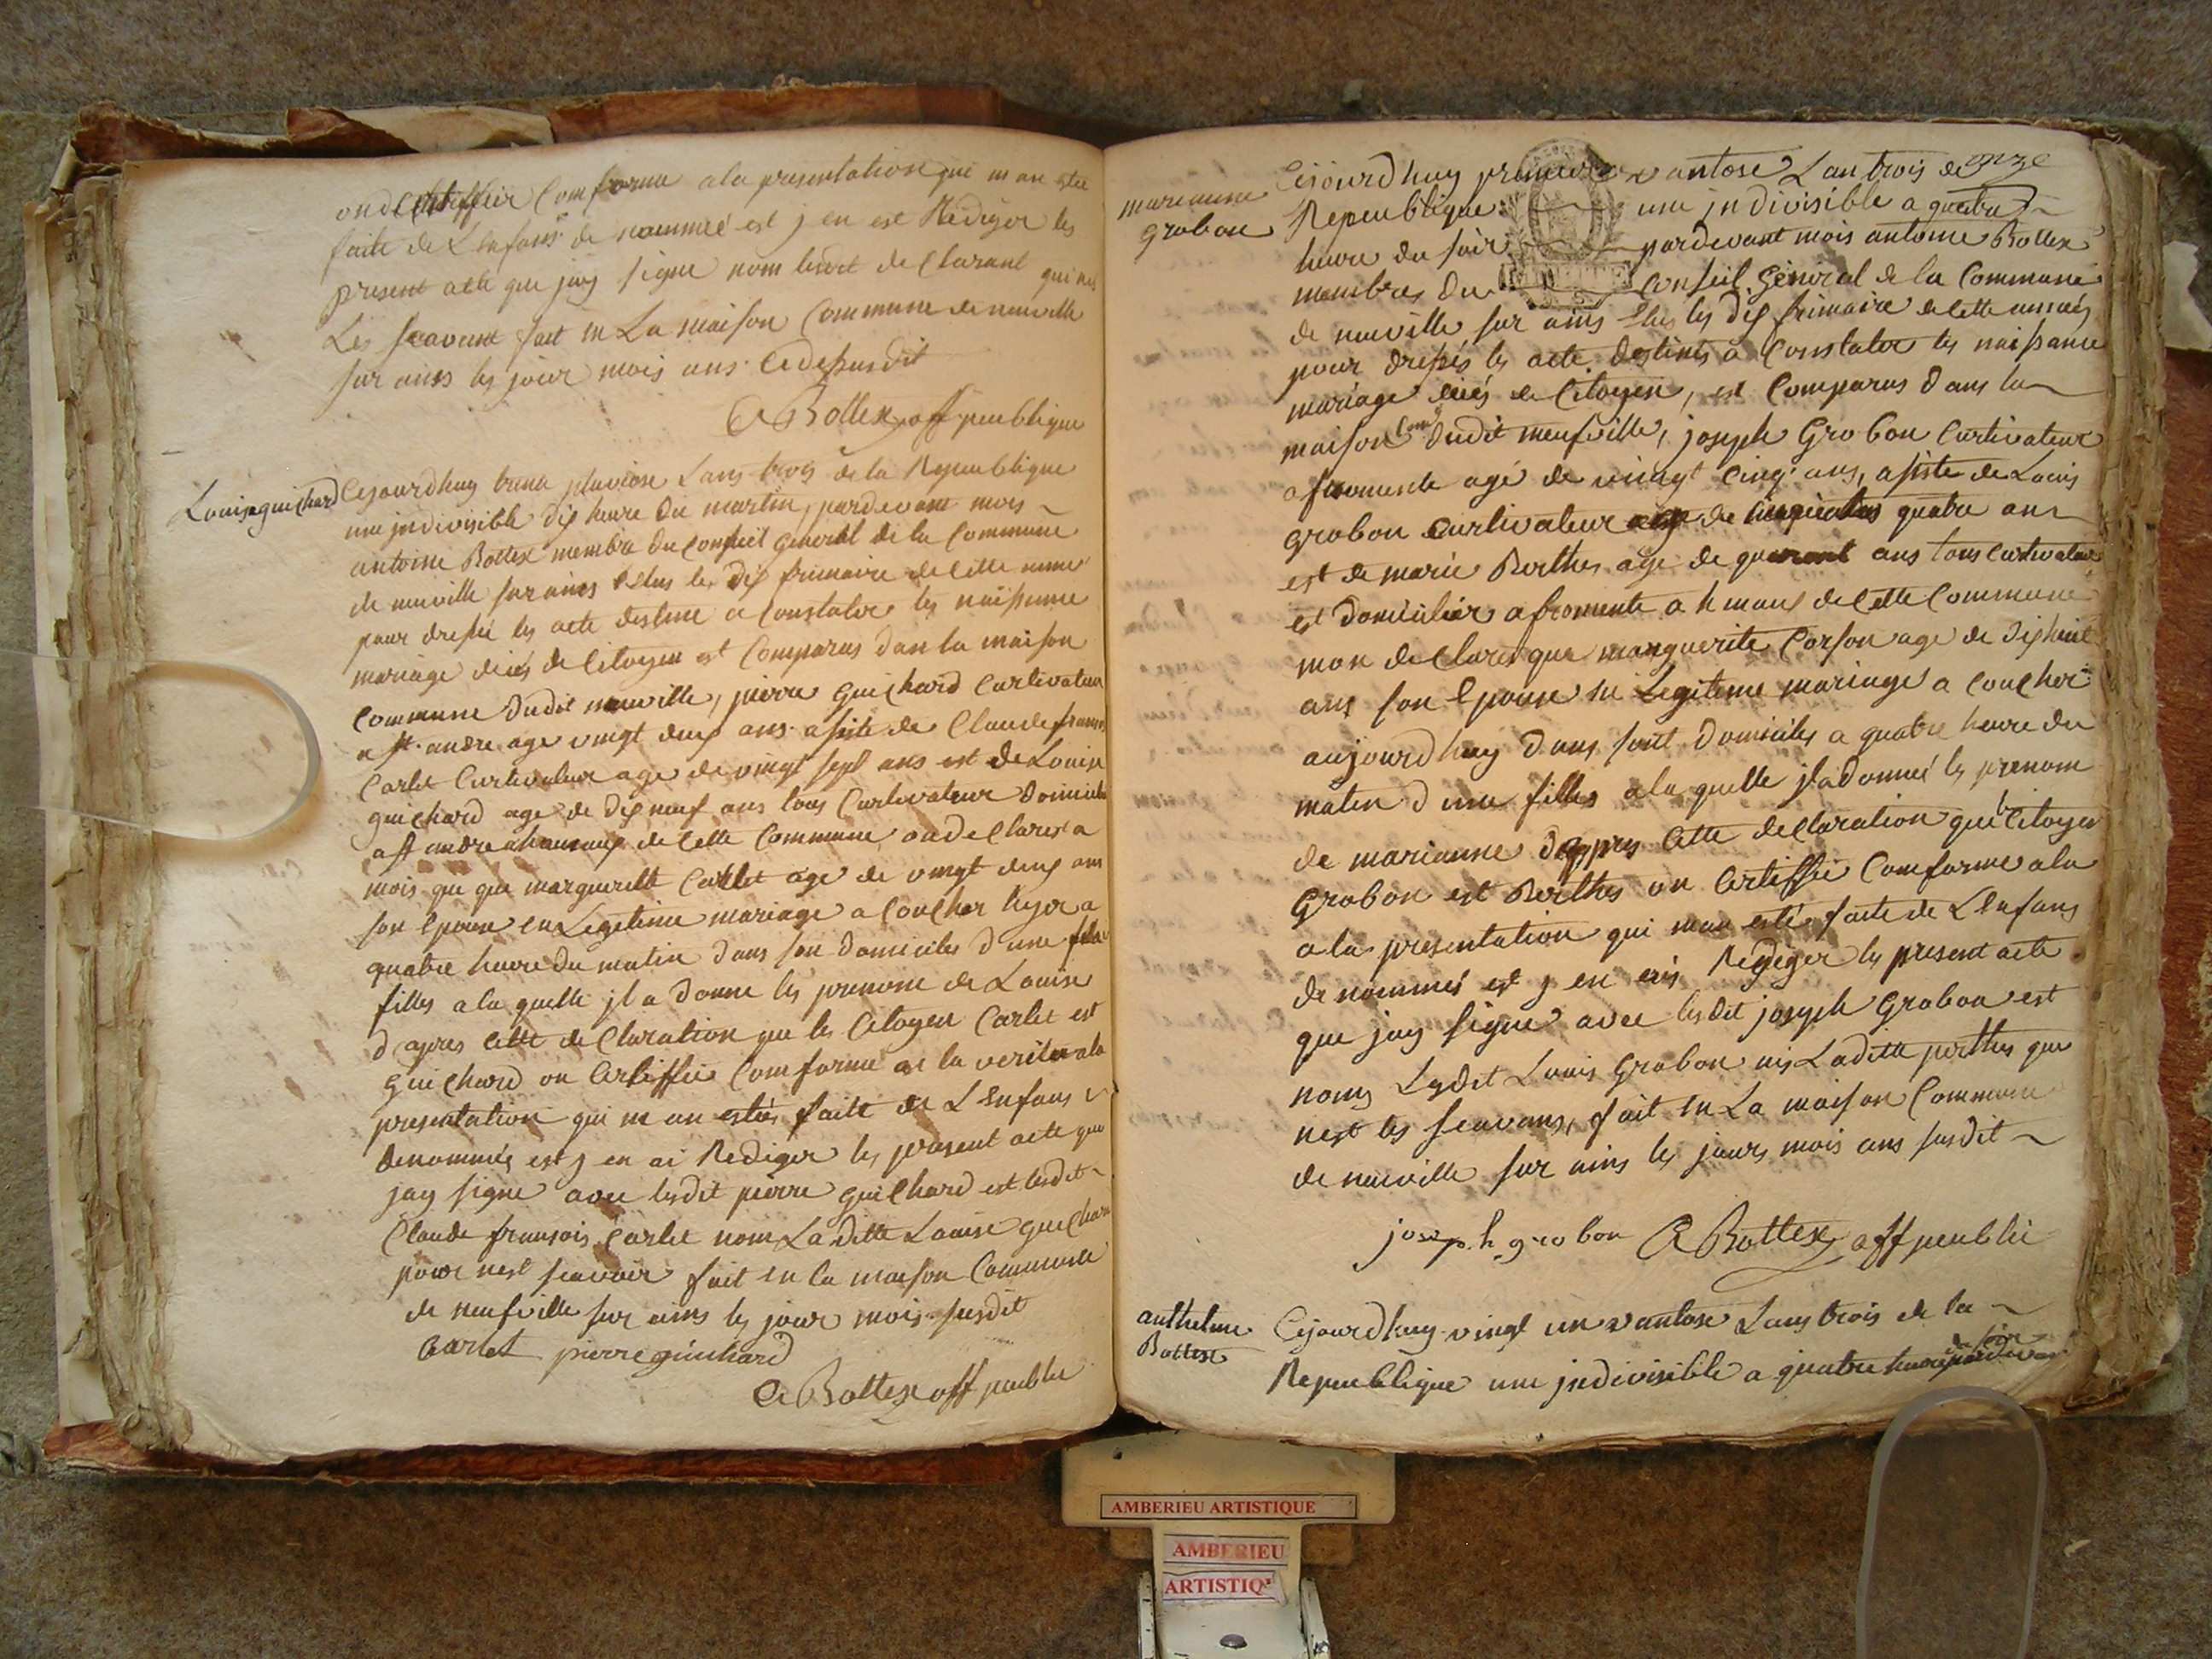 ond Certiffier Comforme a la presentation qui m an estee
faite de Lenfans de nommé est j en est Rediger les
present acte que jay signe nom lesdit declarant qui nes
Les scavant fait en La maison Commune de neuville
sur ains les jour mois ans Cedessusdit
A Bottex off peublique
Louise guichard
Cejourdhuy trante pluviose Lans trois de la Repeublique
une jndivisible dix heure du martin, pardevant mois
antoine Bottex membre du conseil general de la Commune
de neuville sur ains Eslus les dix frimaire de cette année
pour dressée les acte destine a Constater les naissance
mariage déiés de Citoyen est Comparus dan la maison
Commune dudit neuville, pierre guichard Curtivateur
a st andre age vingt deux ans asiste de Claude fransois
Carlet Curtivateur age de vingt sept ans est de Louise
guichard age de dix neuf ans tous Curtivateur domicilie
a st andre ahamaux de cette Commune on declarer a
mois que que margueritte Carlet age de vingt deux ans
son Epouse en Legitime mariage a Coucher hyer a
quatre heure du matin dans son domiciles d une
filles a la quelle jl a donne les prenome de Louise
d apres cette declaration que les Citoyen Carlet est
guichard on Certiffier Comforme a la verite a la
presentation qui m an estés faite de L Enfans
denommés est j en ai Rediger les present acte que
jay signe avec lesdit pierre guichard est lesdit
Claude fransois Carlet nom Laditte Louise guichard
pour nest scavoir fait en la maison Commune
de neufville sur ains les jour mois susdit
Carlet pierre guichard
A Bottex off peublic
marianne
grobon
Cejourdhuy premier vantose Lan trois de onze
Repeublique une jndivisible a quatre
heure du soir pardevant mois antoine Bottex
membres du Conseil général de la Commune
de neuville sur ains Elus les dix frimaire de cette année
pour dressés les acte destinés a Constater les naissance
mariage déiés de Citoyen, est Comparus dans la
maison Com dudit neufville, joseph Grobon Curtivateur
a fromente agé de vingt cinq ans, asiste de Louis
grobon Curtivateur age de cinquantes quatre ans
est de marie Berthes age de quarant ans tous Curtivateur
est domicilier a fromente a hmaux de cette Commune
mon declares que marguerite Corson age de dix huit
ans son Epouse en Legiteme mariage a Coucher
aujourdhuy dans sont domiciles a quatre heure du
matin d une filles a la quelle jl a donneé les prenom
de marianne dappres cette declaration que les Citoyen
Grobon est Berthes on Certiffie Comforme a la
a la presentation qui man esté faite de LEnfans
de nommés est j en ais Rediger les present acte
que jay signe avec lesdit joseph Grobon est
noms Lesdit Louis Grobon nis Laditte perthes que
nest les scavans, fait en La maison Commune
de neuville sur ains les jours mois ans susdit
joseph grobon A Bottex off peublic
anthelme
Bottex
Cejourdhuy vingt un vantose Lans trois de la
Republique une jndivisible a quatre heure du soir pardevan
AMBERIEU ARTISTIQUE
AMBERIEU
ARTISTIQ